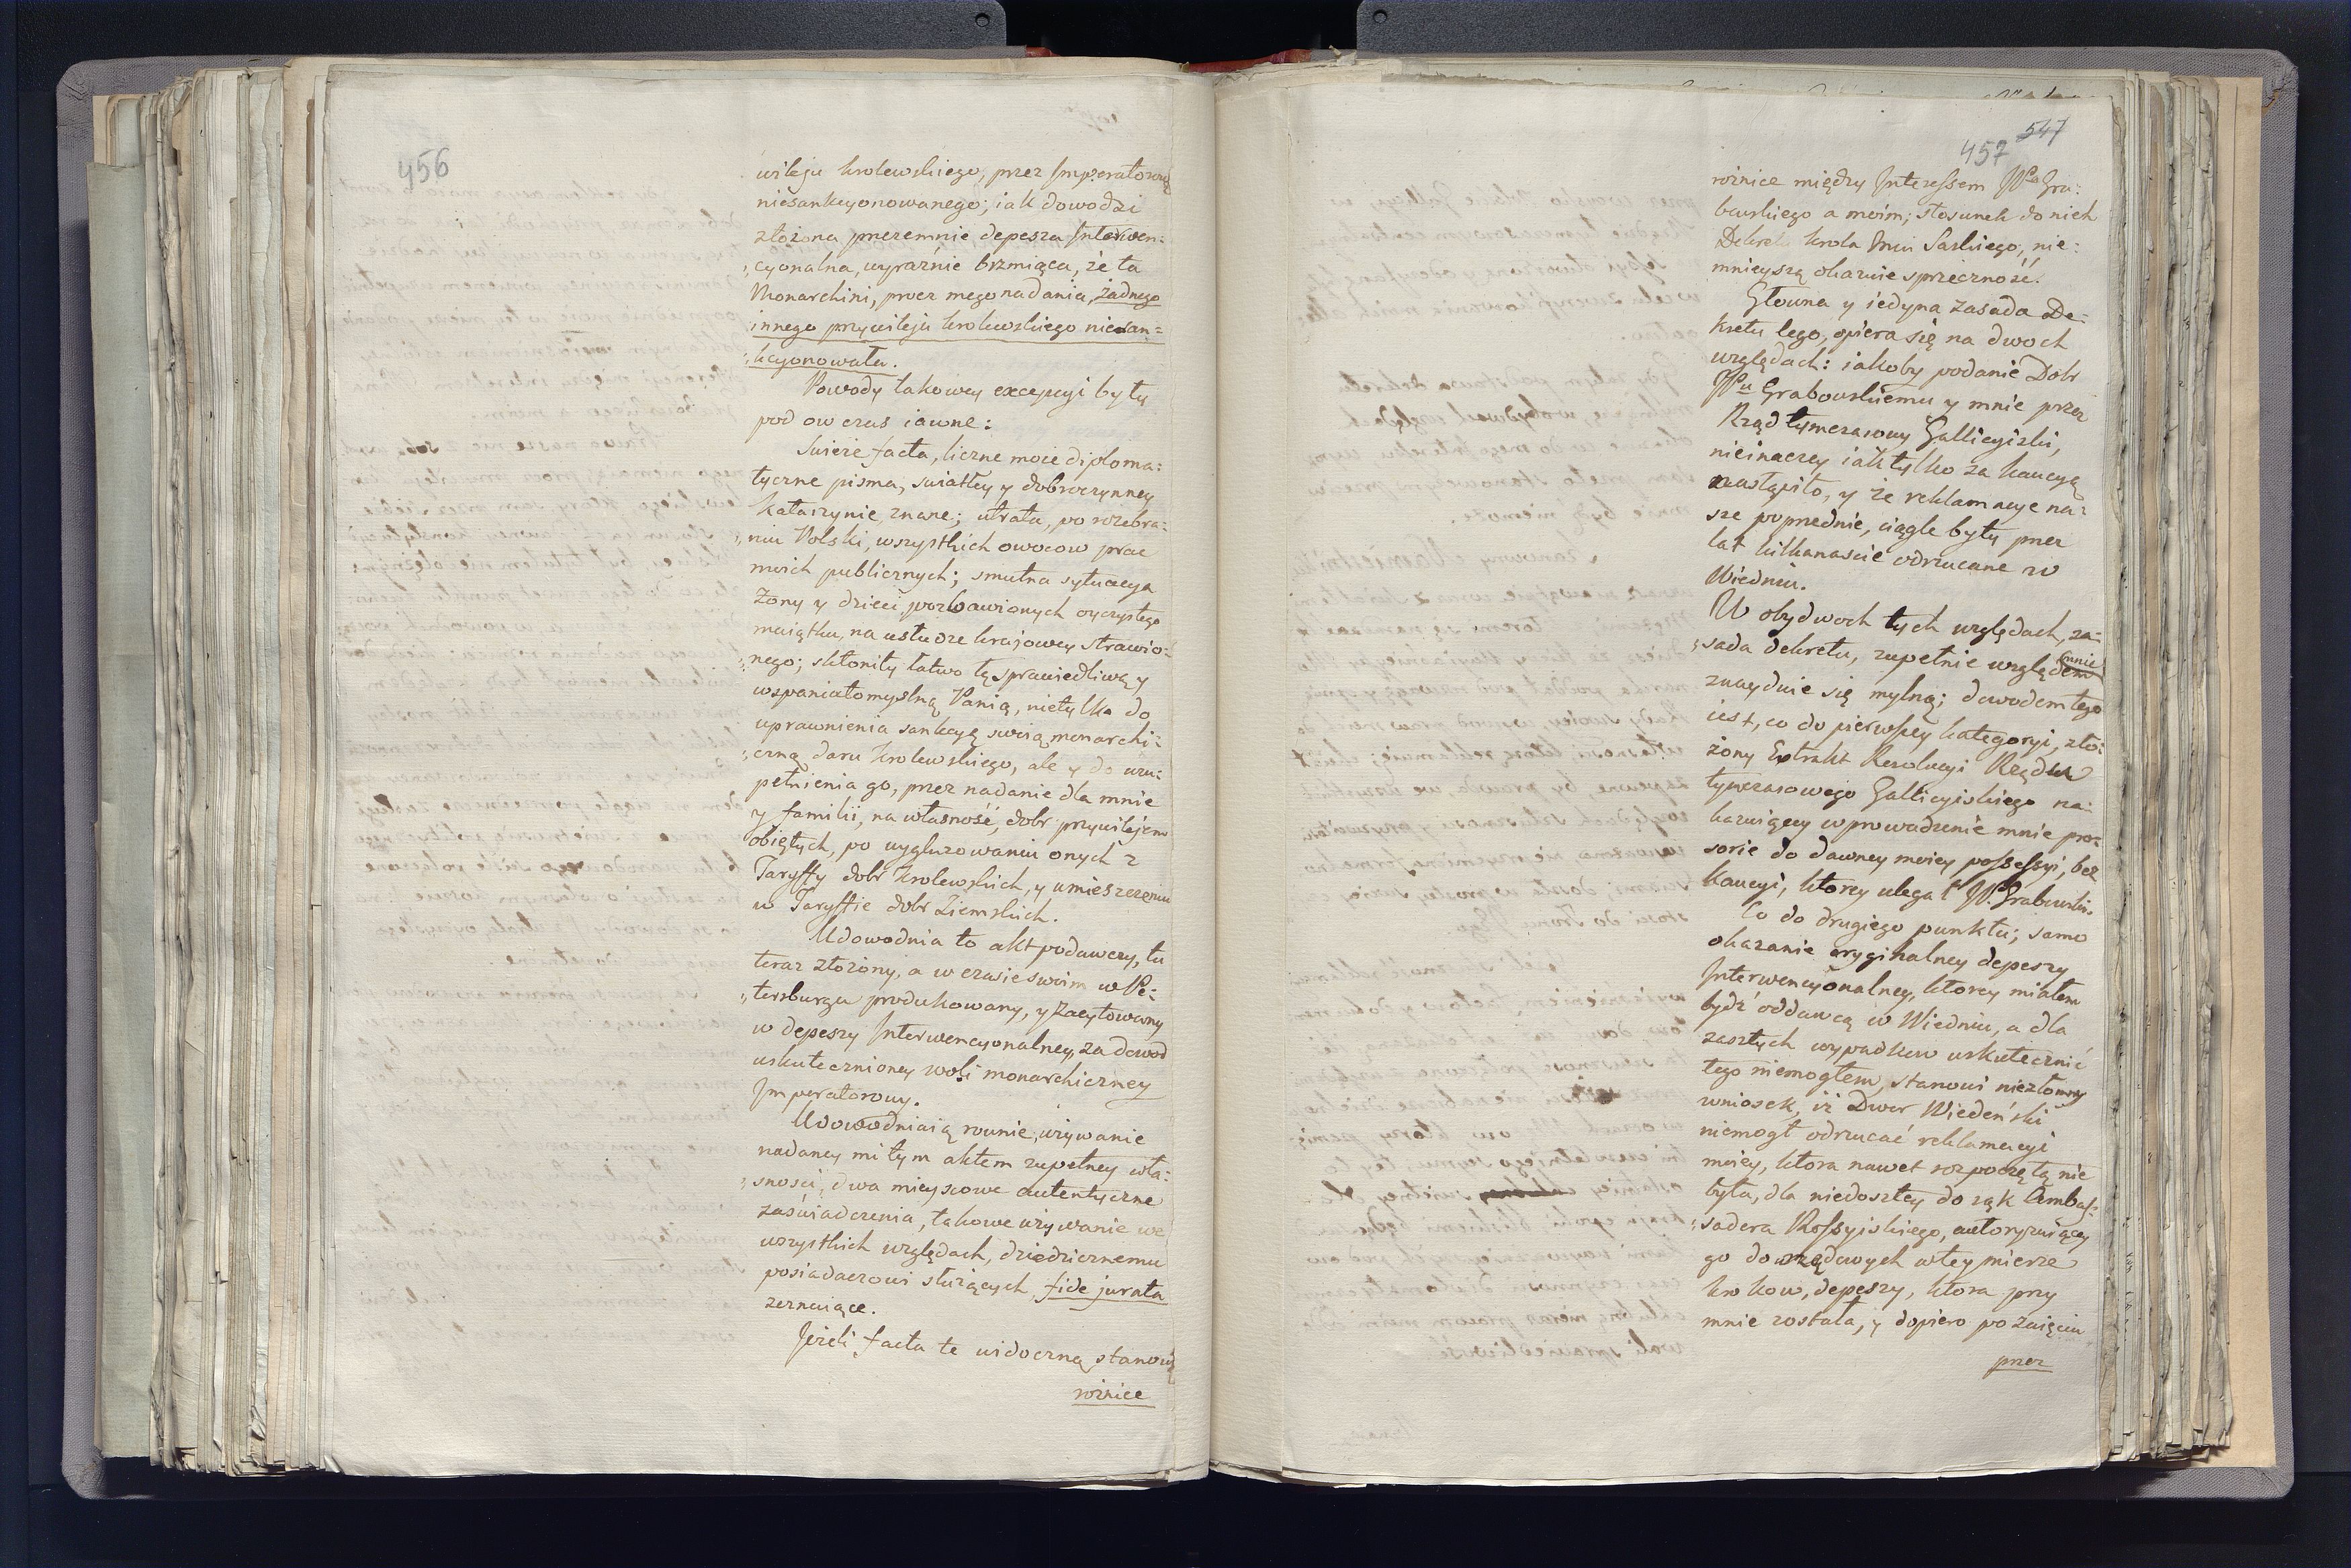 456
wileju krolewskiego, przez Imperatorową
niesankcyonowanego; iak dowodzi
złożona przezemnie depesza Interwen:
„cyonalna, wyraźnie brzmiąca, że ta
Monarchini, procz mego nadania, żadnego
innego przywileju krolewskiego niesan=
„kcyonowała.
Powody takowey excepcyi były
pod ow czas iawne:
Swieże facta, liczne moie diploma:
tyczne pisma, swiatłey y dobroczynney
Katarzynie znane; utrata, po rozebra:
„niu Polski, wszystkich owocow prac
moich publicznych; smutna sytuacya
Żony y dzieci pozbawionych oyczystego
maiątku, na usłudze krajowey strawio:
„nego; skłoniły łatwo tę sprawiedliwą y
wspaniałomyslną Panią, nietylko do
uprawnienia sankcyą swoią monarchi:
„czną daru krolewskiego, ale y do uzu:
pełnienia go, przez nadanie dla mnie
y familii, na własność, dobr przywilejem
obiętych, po wygluzowaniu onych z
Taryffy dobr krolewskich, y umieszczeniu
w Taryffie dobr Ziemskich.
Udowodnia to akt podawczy, tu
teraz złożony, a w czasie swoim w Pe:
„tersburgu produkowany, y zacytowany
w depeszy Interwencyonalney, za dowod
uskutecznioney woli monarchiczney
Imperatorowy.
Udowodniaią rownie, używanie
nadaney mi tym aktem zupełney wła:
„sności, dwa mieyscowe autentyczne
zaświadczenia, takowe używanie we
wszystkich względach, dziedzicznemu
posiadaczowi służących, fide jurata
zeznaiące.
Jeżeli facta te widoczną stanowią
roznice
547
457
roznice między Interessem JPa Gra:
bowskiego a moim; stosunek do nich
Dekretu krola Jmci Saskiego, nie:
mnieyszą okazuie sprzeczność.
Głowna y iedyna zasada De:
kretu tego, opiera się na dwoch
względach: iakoby podanie Dobr
JPu Grabowskiemu y mnie przez
Rząd tymczasowy Gallicyiski,
nieinaczey iak tylko za kaucyą
nastąpiło, y że reklamacye na:
sze poprzednie, ciągle były przez
lat kilkanaście odrzucane w
Wiedniu.
W obydwoch tych względach, za:
„sada dekretu, zupełnie względem mnie
znayduie się mylną; dowodem tego
iest, co do pierwszey kategoryi, zło:
żony Extrakt Rezolucyi Rządu
tymczasowego Gallicyiskiego na:
kazuiącey wprowadzenie mnie pro:
sorie do dawney moiey possessyi, bez
kaucyi, ktorey ulegał JP. Grabowski.
Co do drugiego punktu; samo
okazanie oryginalney depeszy
Interwencyonalney, ktorey miałem
bydź oddawcą w Wiedniu, a dla
zaszłych wypadkow uskutecznić
tego niemogłem, stanowi niezłomny
wniosek, iż Dwor Wiedeński
niemogł odrzucać reklamacyi
moiey, ktora nawet rozpoczętą nie
była, dla niedoszłey do rąk Ambas:
„sadora Rossyiskiego, autoryzuiącey
go do urzędowych wtey mierze
krokow, depeszy, ktora przy
mnie została, y dopiero po zaięciu
przez